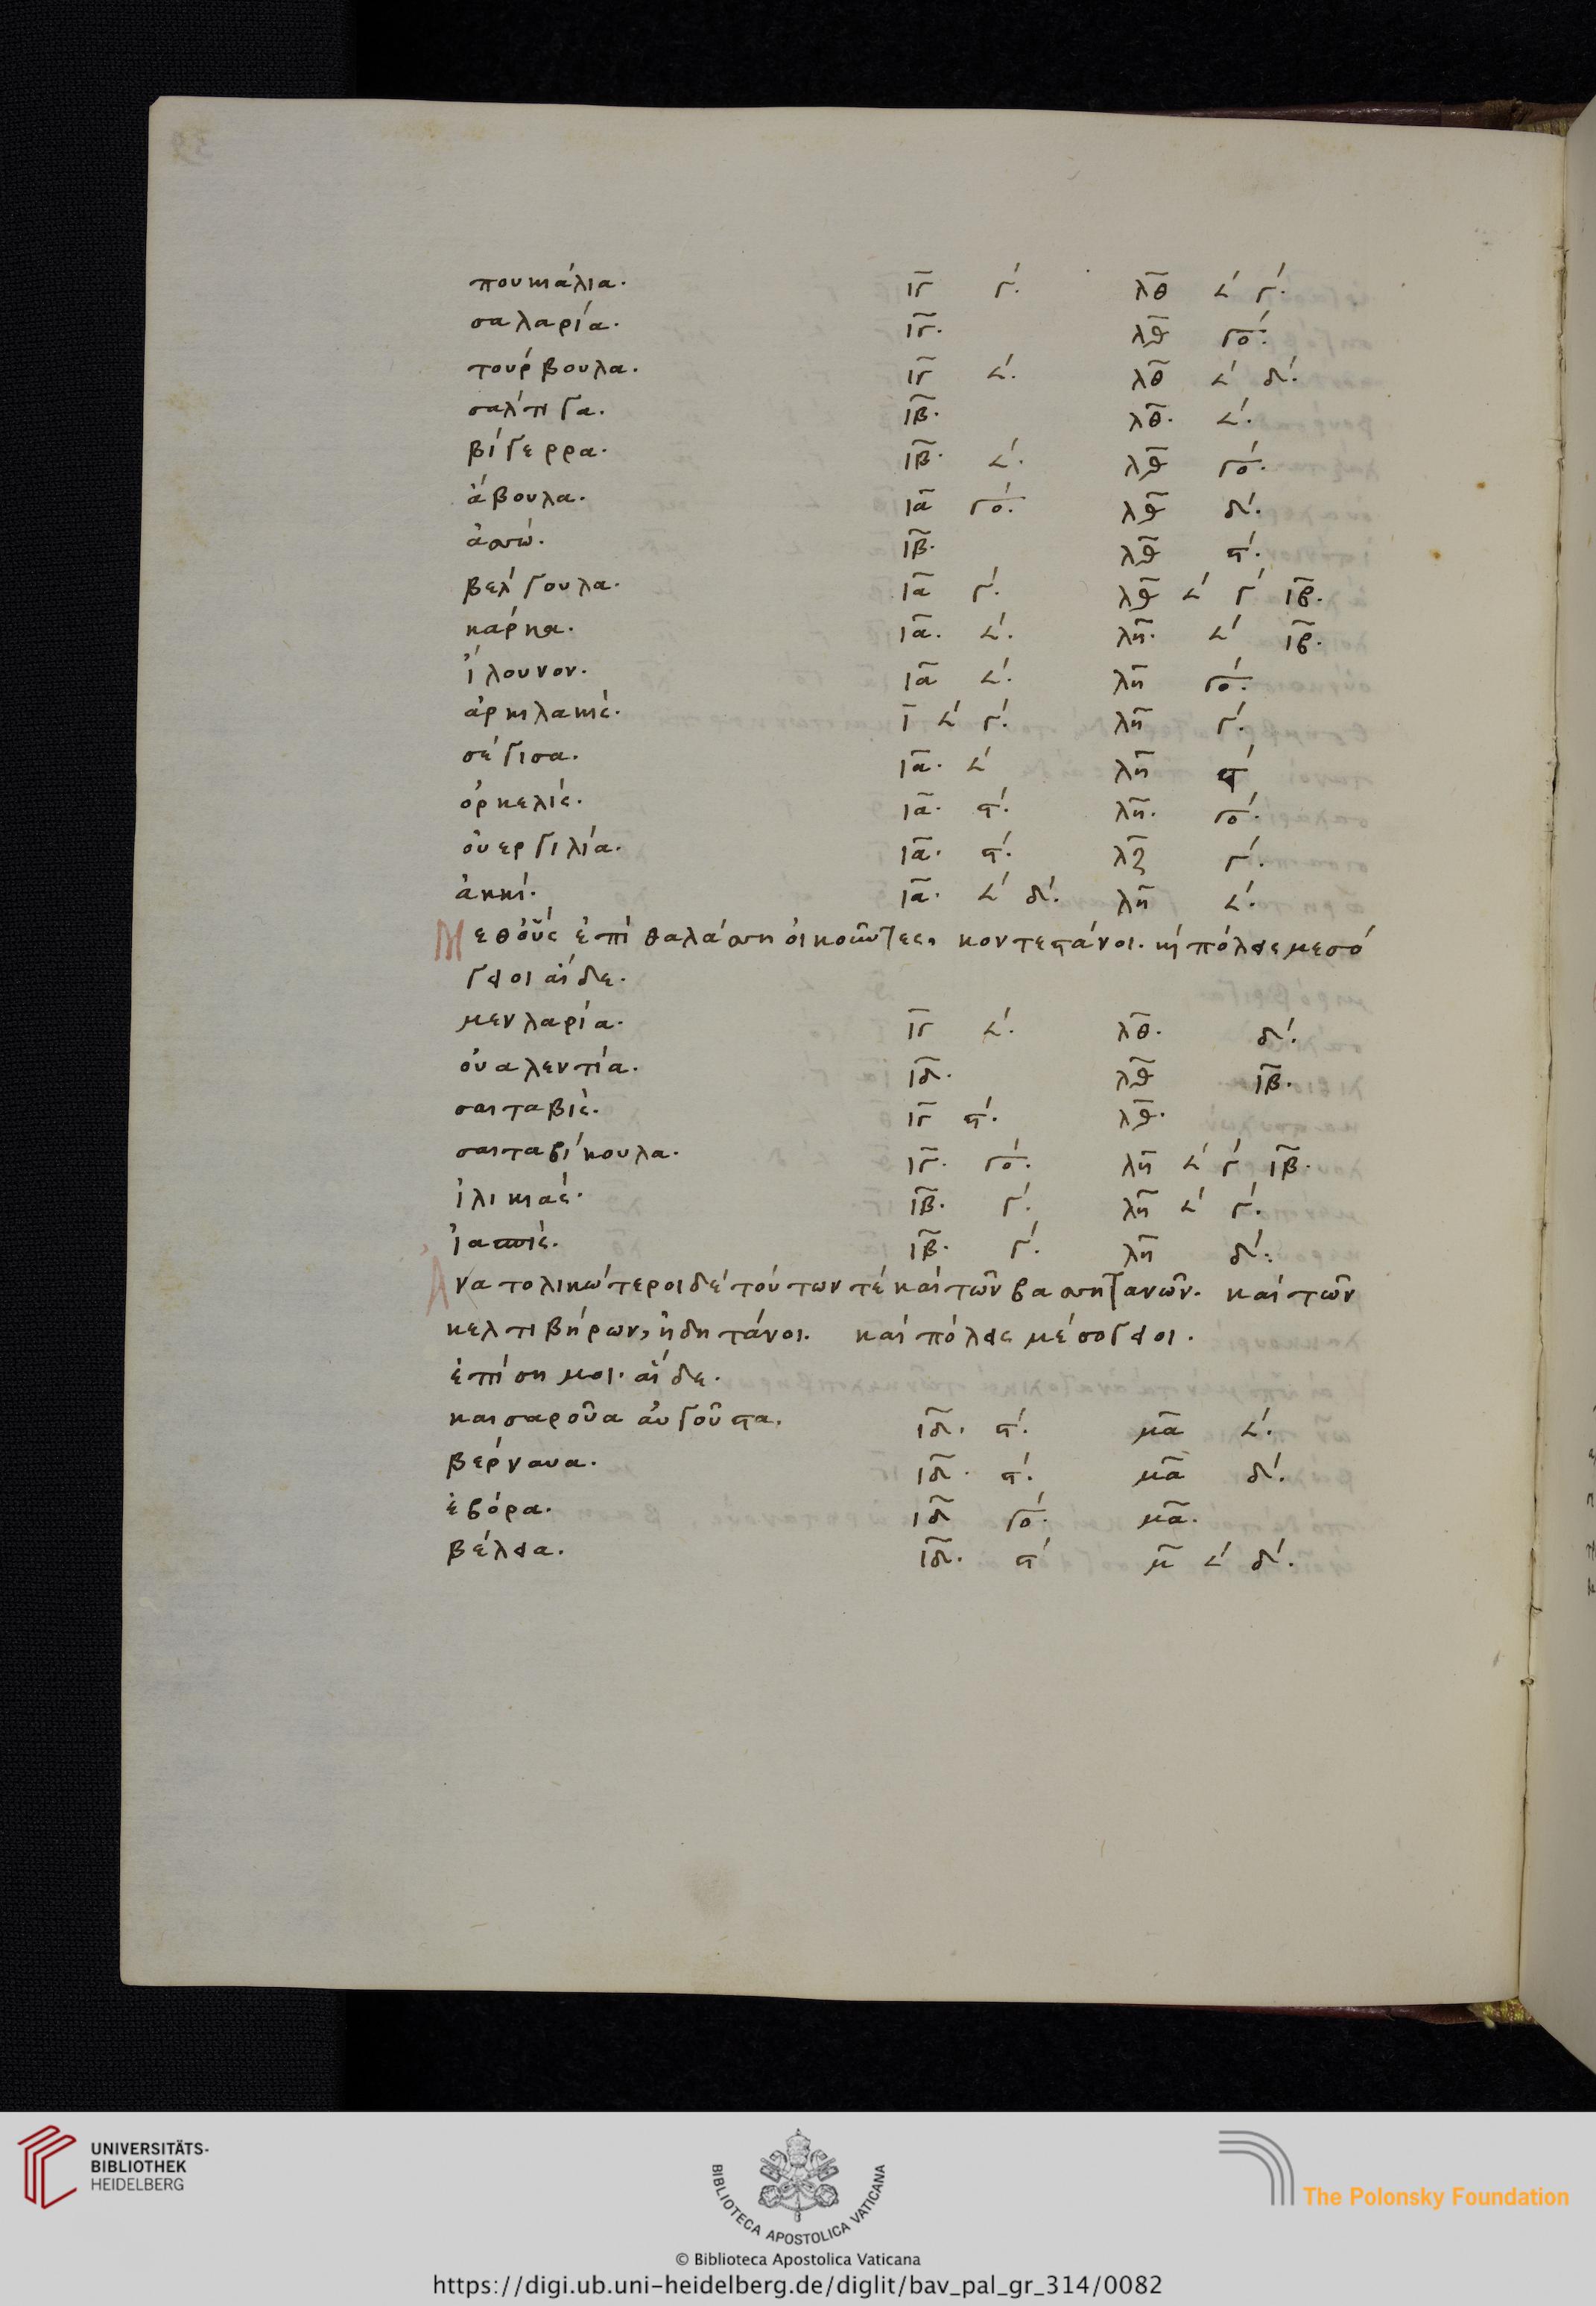 πουκιάλια. ιγ γ'. λθ 𐅵' γ'.
σαλαρία. ιγ. λθ γο'.
τούρβουλα. ιγ 𐅵'. λθ 𐅵' δ'.
σαλτιγα. ιβ. λθ. 𐅵'.
βίγερρα. ιβ. 𐅵'. λθ γο'.
ἄβουλα. ια γο'. λθ δ'.
ἀσσώ. ιβ. λθ ϛ'.
βελγουλα. ια γ'. λθ 𐅵' γ' ιβ.
κάρκα. ια. 𐅵'. λη. 𐅵' ιβ.
ἴλουνον. ια 𐅵'. λη γο'.
ἀρκιλακίς. ι 𐅵' γ'. λη γ'.
σέγισα. ια. 𐅵' λη ϛ'
ὀρκελίς. ια. ϛ'. λη. γο'.
οὐεργιλία. ια. ϛ'. λζ γ'.
ἀκκί. ια. 𐅵' δ'. λη 𐅵'.
Μεθοὓς ἐπὶ θαλάσση οἰκοῦντες, κοντεστάνοι. κὶ πόλεις μεσό
γειοι αἵδε.
μενλαρία. ιγ 𐅵'. λθ. δ'.
οὐαλεντία. ιδ. λθ ιβ.
σαιταβίς. ιγ ϛ'. λθ.
σαιταβίκουλα. ιγ. γο'. λη 𐅵' γ' ιβ.
ἰλικιάς. ιβ. γ'. λη 𐅵' γ'.
ἰασπίς. ιβ. γ'. λη δ'.
Ἀνατολικώτεροι δὲ τούτων τὲ καὶ τῶν βαστητανῶν. καὶ τῶν
κελτιβήρων, ἠδητάνοι. καὶ πόλεις μέσογειοι.
ἐπίσημοι. αἵδε.
καισαροῦα αὐγοῦστα. ιδ. ϛ'. μα 𐅵'.
βέρναυα. ιδ. ϛ'. μα δ'.
ἐβόρα. ιδ γο'. μα.
βέλεια. ιδ. ϛ' μ 𐅵' δ'.
UNIVERSITÄTS-
BIBLIOTHEK
HEIDELBERG
BIBLIOTECA APOSTOLICA VATICANA
The Polonsky Foundation
© Biblioteca Apostolica Vaticana
https://digi.ub.uni-heidelberg.de/diglit/bav_pal_gr_314/0082